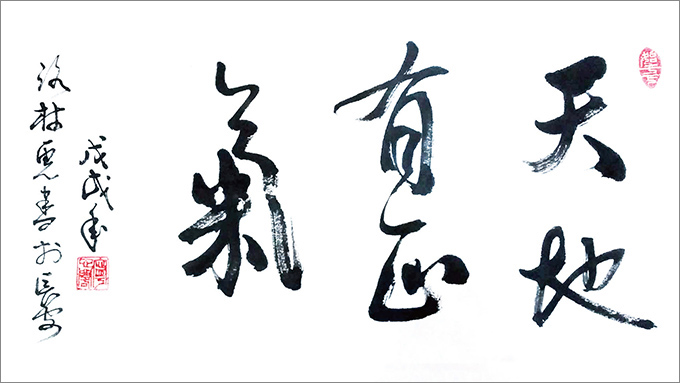 天地
有正
氣
戊戌年
林書於長安